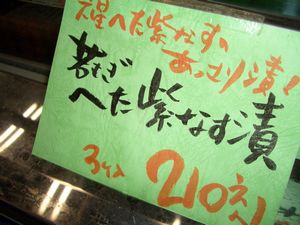 へた紫なす、
あっさり漬!
若むぎ
へた紫なす漬
3ケ入 210え